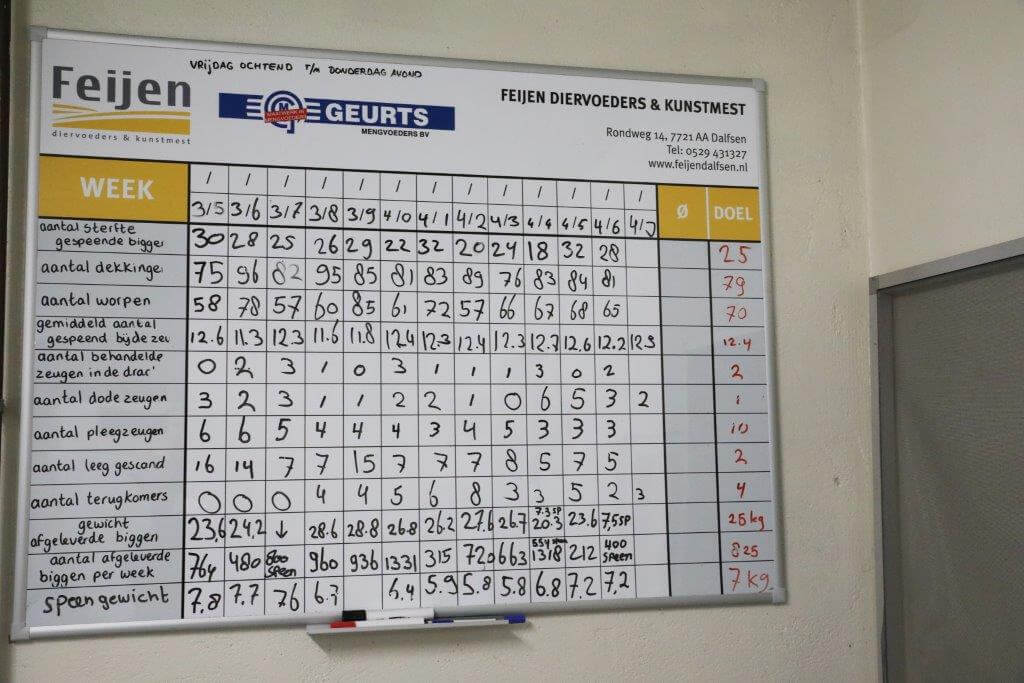 VRIJDAG OCHTEND T/M DONDERDAG AVOND
Feijen
diervoeders & kunstmest
MAATWERK IN MENGVOEDERS
GEURTS
MENGVOEDERS BV
FEIJEN DIERVOEDERS & KUNSTMEST
Rondweg 14, 7721 AA Dalfsen
Tel: 0529 431327
www.feijendalfsen.nl
WEEK / / / / / / / / / / / / / Ø DOEL
3/5 3/6 3/7 3/8 3/9 4/0 4/1 4/2 4/3 4/4 4/5 4/6
aantal sterfte gespeende bigge 30 28 25 26 29 22 32 20 24 18 32 28 25
aantal dekkinge 75 96 82 95 85 81 83 89 76 83 84 81 79
aantal worpen 58 78 57 60 85 61 72 57 66 67 68 65 70
gemiddeld aantal gespeend bijde zeu 12.6 11.3 12.3 11.6 11.8 12.4 12.3 12.4 12.3 12.7 12.6 12.2 12.4
aantal behandelde zeugen in de drac 0 2 3 1 0 3 1 1 1 3 0 2 2
aantal dode zeugen 3 2 3 1 1 2 2 1 0 6 5 3 2 1
aantal pleegzeugen 6 6 5 4 4 4 3 4 5 3 3 3 10
aantal leeg gescand 16 14 7 7 15 7 7 7 8 5 7 5 2
aantal terugkomers 0 0 0 4 4 5 6 8 3 3 5 2 3 4
gewicht afgeleverde biggen 23,6 24,2 ↓ 28.6 28.8 26.8 26.2 27.6 26.7 7.3 SP 20.3 23.6 7,5 SP 25 kg
aantal afgeleverde biggen per week 764 480 800 speen 960 936 1331 315 720 663 1318 212 400 speen 825
speen gewicht 7,8 7,7 76 6.4 5.9 5.8 5.8 6.8 7.2 7,2 7 kg